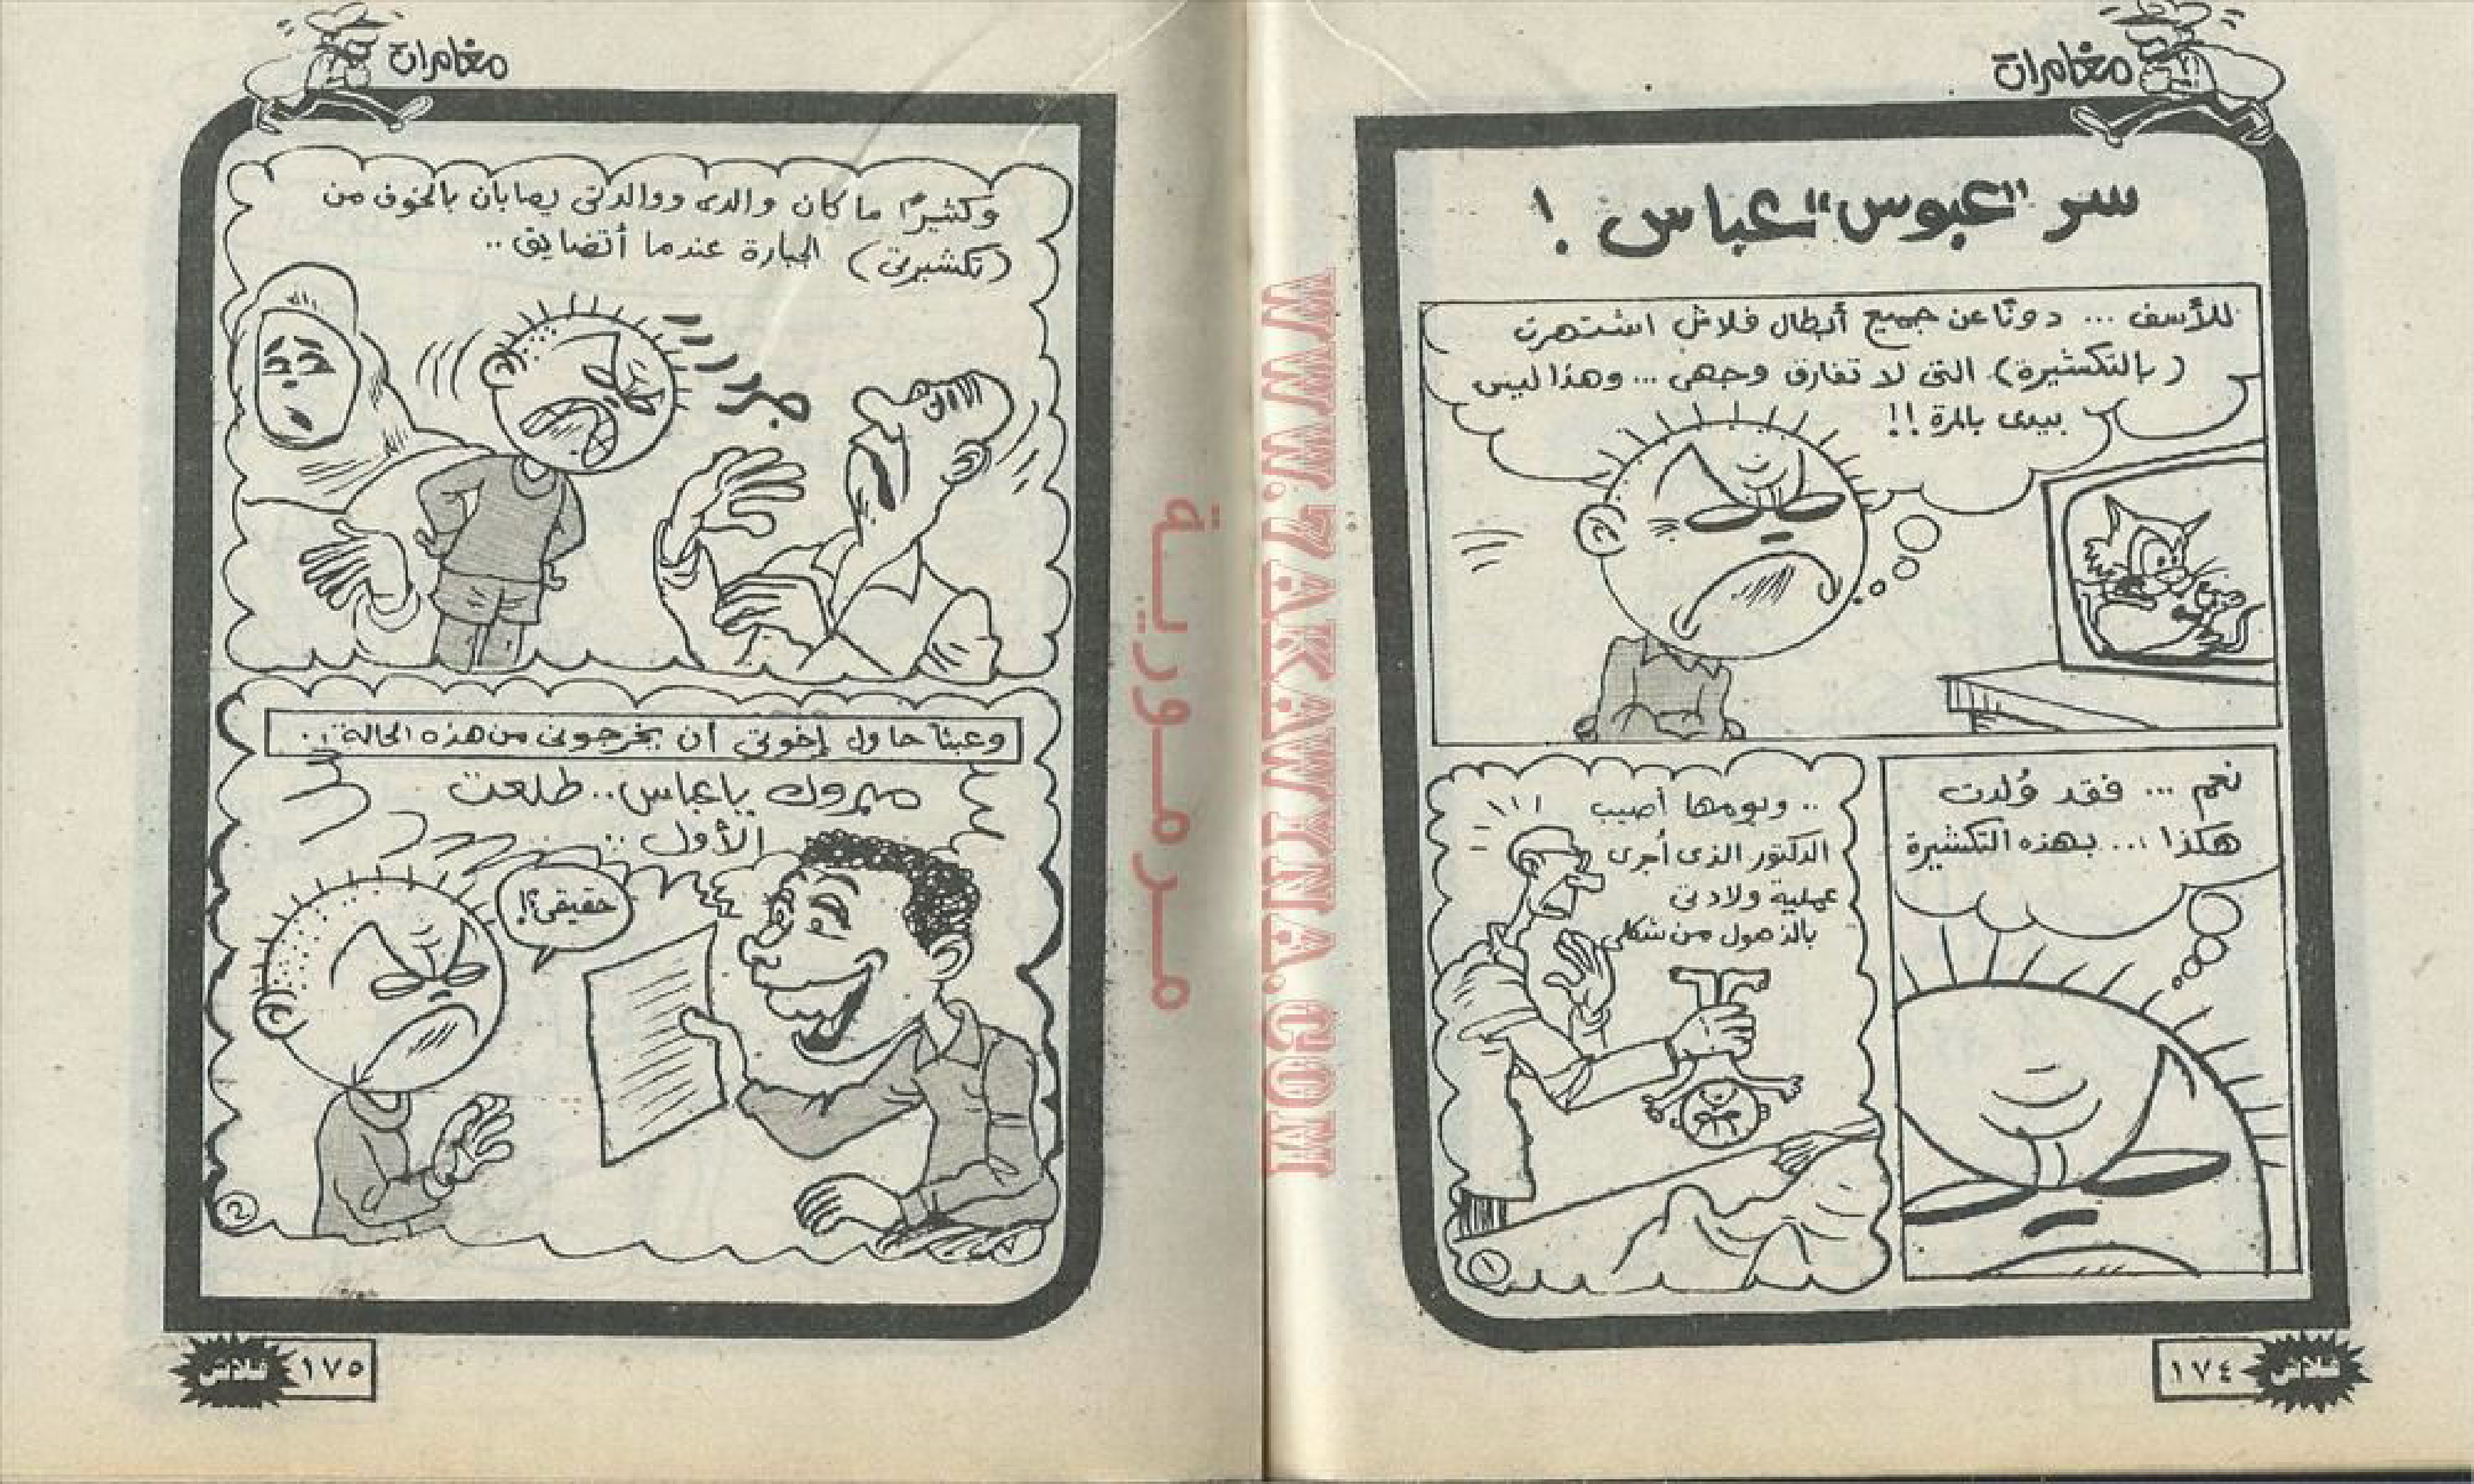 مغامرات
سر "عبوس" عباس !
للأسف ... دونًا عن جميع أبطال فلاش اشتهرت
(بالتكشيرة) التى لا تفارق وجهى ... وهذا ليس
بيدى بالمرة !!
نعم ... فقد وُلدت
هكذا ... بهذه التكشيرة
.. ويومها أصيب
الدكتور الذى أجرى
عملية ولادتى
بالذهول من شكلى
١
١٧٤
فلاش
مغامرات
وكثيرًا ما كان والدى ووالدتى يصابان بالخوف من
(تكشيرتى) الجبارة عندما أتضايق ..
وعبثًا حاول إخوتى أن يخرجونى من هذه الحالة ..
مبروك يا عباس .. طلعت
الأول ..
حقيقى؟!
2
١٧٥
فلاش
مرمورية
WWW.7AKAWINA.COM